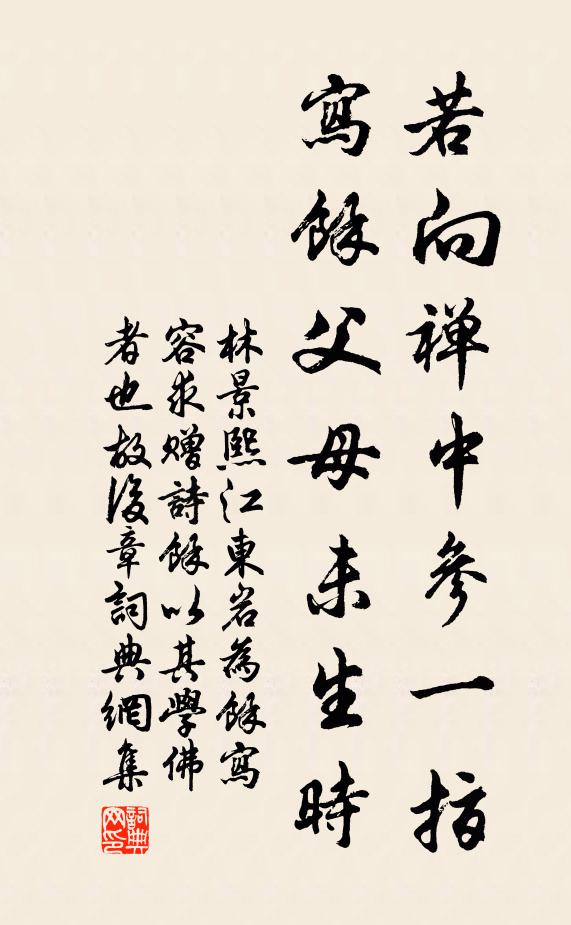 若向禅中參一指
寫餘父母未生時
林景熙江東岩為餘寫
容求贈詩餘以其學佛
者也故後章詞典網集
詞典網印